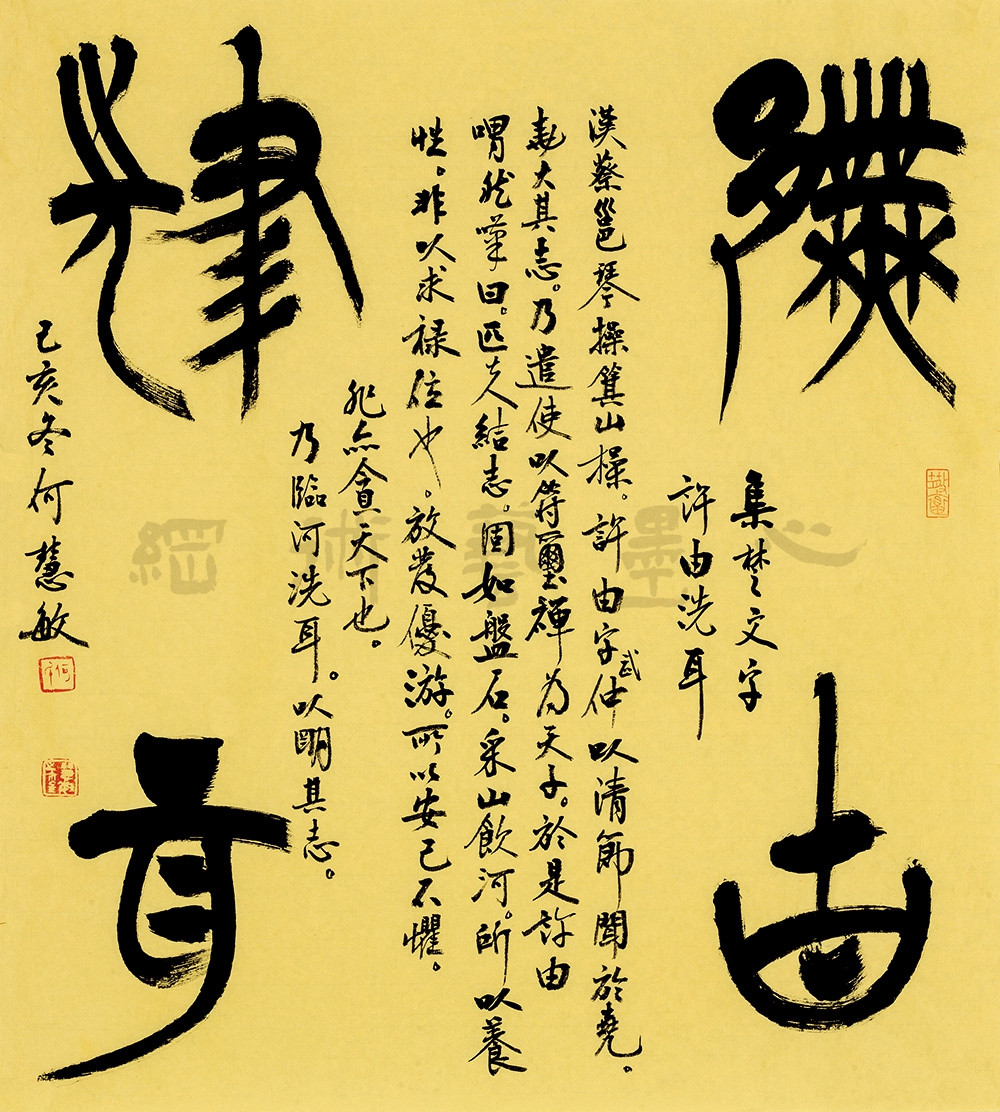 許由
洗耳
集楚文字
許由洗耳
漢蔡邕琴操箕山操。許由字武仲以清節聞於堯。
堯大其志。乃遣使以符璽禪為天子。於是許由
喟然嘆曰。匹夫結志。固如盤石。采山飲河。所以養
性。非以求祿位也。放發優游。所以安己不懼。
非以貪天下也。
乃臨河洗耳。以明其志。
己亥冬何慧敏
心墨藝術網